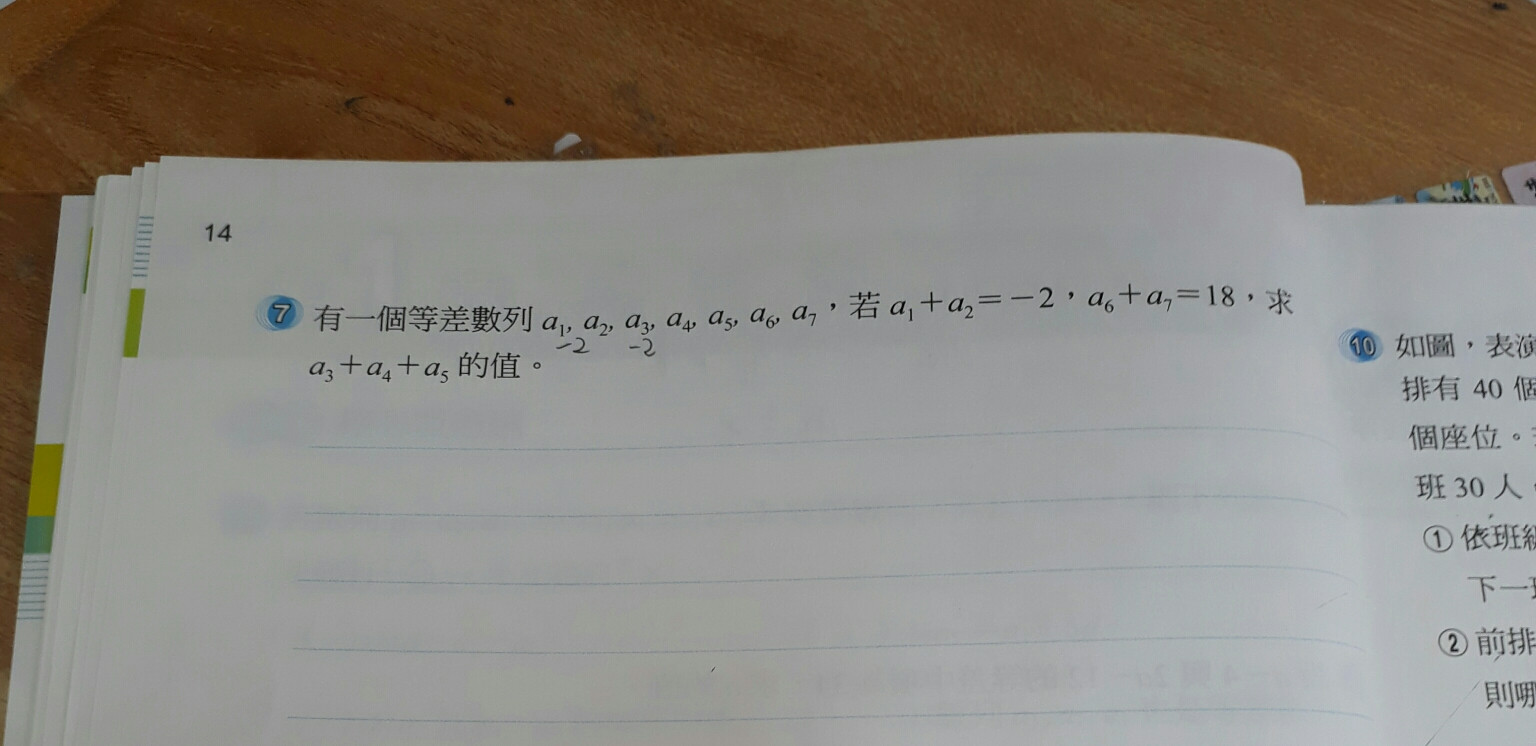 14
7 有一個等差數列 a₁, a₂, a₃, a₄, a₅, a₆, a₇,若 a₁+a₂=-2,a₆+a₇=18,求
-2 -2
a₃+a₄+a₅ 的值。
10 如圖,表演
排有 40 個
個座位。
班 30 人
① 依班級
下一班
② 前排
則哪